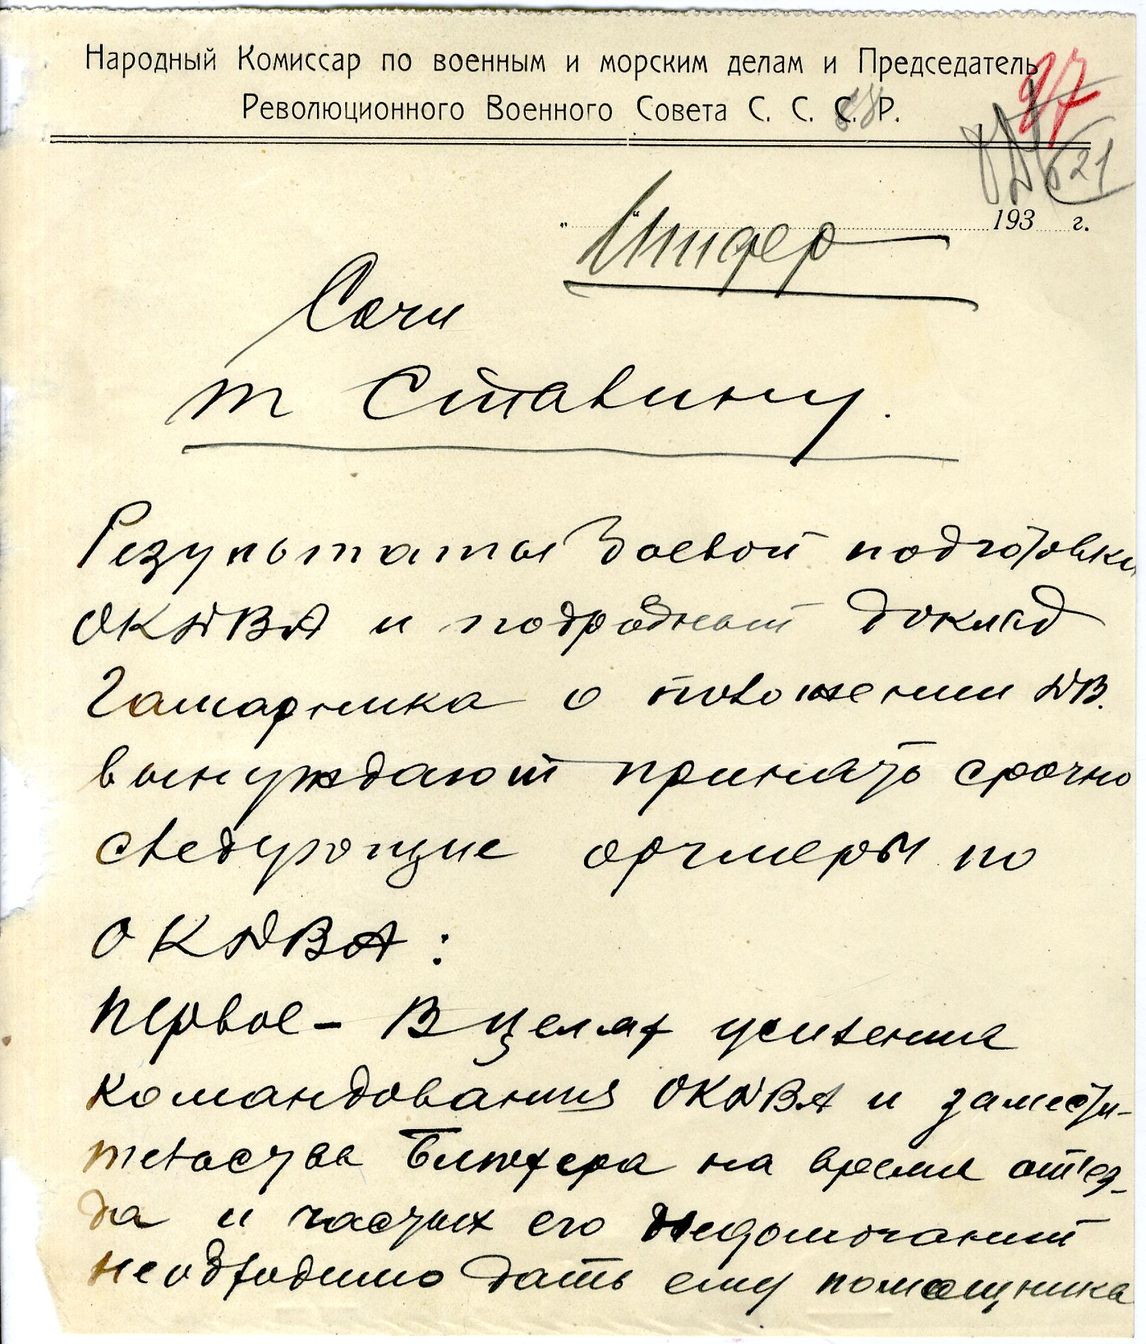 Народный Комиссар по военным и морским делам и Председатель
Революционного Военного Совета С. С. С. Р.
27
621
" " 193 г.
Шифер
Сочи
т Сталину.
Результаты боевой подготовки
ОКДВА и подробный доклад
Гамарника о положении ДВ.
вынуждают принять срочно
следующие оргмеры по
ОКДВА:
Первое – В целях усиления
командования ОКДВА и замести-
тельства Блюхера на время отъез-
да и частых его недомоганий
необходимо дать ему помощника